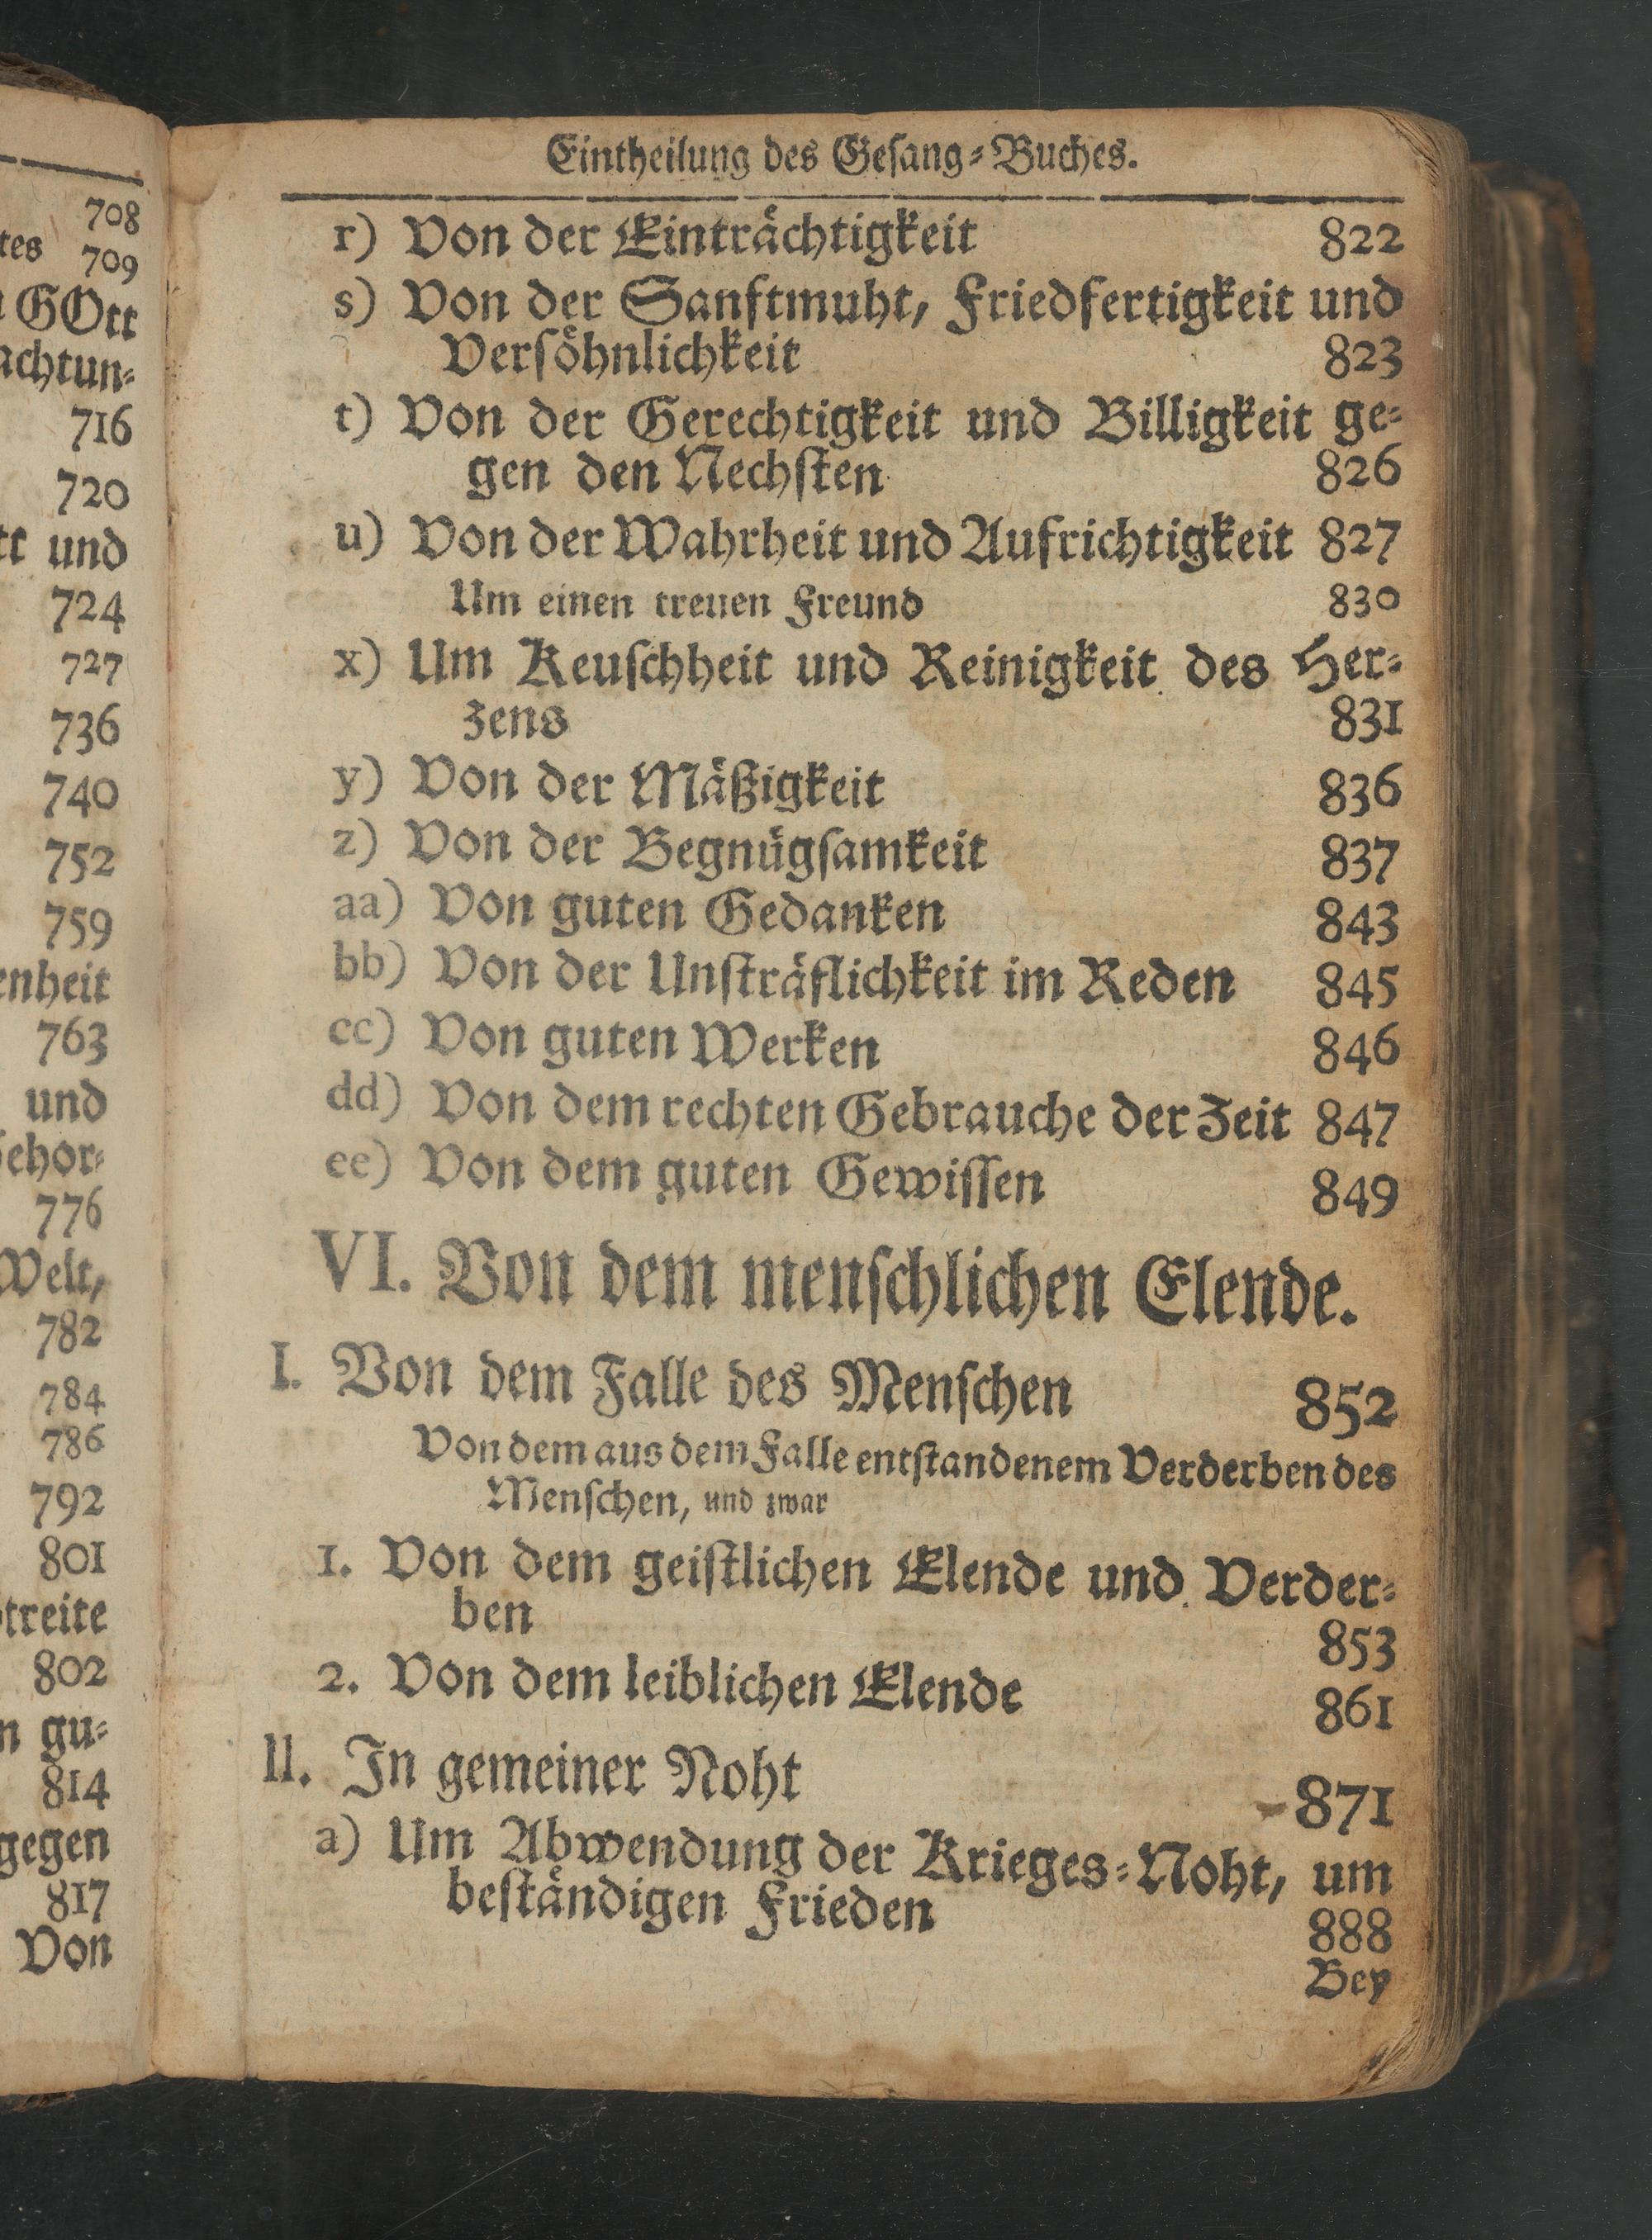 708
tes 709
GOtt
achtun-
716
720
und
724
727
736
740
752
759
enheit
763
und
ehor-
776
Welt,
782
784
786
792
801
treite
802
gu-
814
gegen
817
Von
Eintheilung des Geſang-Buches.
r) Von der Einträchtigkeit 822
s) Von der Sanftmuht, Friedfertigkeit und
Verſöhnlichkeit 823
t) Von der Gerechtigkeit und Billigkeit ge-
gen den Nechſten 826
u) Von der Wahrheit und Aufrichtigkeit 827
Um einen treuen Freund 830
x) Um Keuſchheit und Reinigkeit des Her-
zens 831
y) Von der Mäßigkeit 836
z) Von der Begnügſamkeit 837
aa) Von guten Gedanken 843
bb) Von der Unſträflichkeit im Reden 845
cc) Von guten Werken 846
dd) Von dem rechten Gebrauche der Zeit 847
ee) Von dem guten Gewiſſen 849
VI. Von dem menſchlichen Elende.
I. Von dem Falle des Menſchen 852
Von dem aus dem Falle entſtandenem Verderben des
Menſchen, und zwar
1. Von dem geiſtlichen Elende und Verder-
ben 853
2. Von dem leiblichen Elende 861
II. In gemeiner Noht 871
a) Um Abwendung der Krieges-Noht, um
beſtändigen Frieden 888
Bey